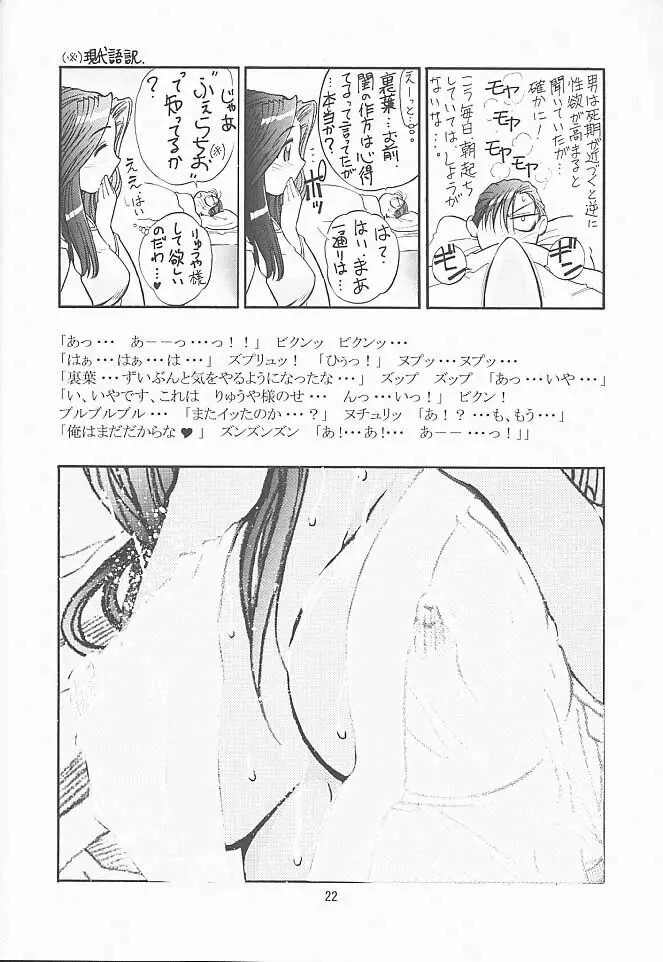 (※)現代語訳.
男は死期が近づくと逆に
性欲が高まると
聞いていたが…
確かに!
モヤ
モヤ
モヤ
こう毎日、朝起ち
していては、しょうが
ないな…。
ギン
ギン
えーっと…
裏葉…お前
閨の作方は心得
てるって言ってたが
…本当か?
ポッ
は?
はい、まあ
一通りは…
じゃあ
"ぶぇらちお"(※)
って知ってるか
?
ええ…はい
りゅうや様
して欲しい
のだわ…♥
「あっ・・・ あーーっ・・・っ!!」 ビクンッ ビクンッ・・・
「はぁ・・・はぁ・・・は・・・」 ズプリュッ! 「ひぅっ!」 ヌプッ・・・ヌプッ・・・
「裏葉・・・ずいぶんと気をやるようになったな・・・」 ズップ ズップ 「あっ・・・いや・・・」
「い、いやです、これは りゅうや様のせ・・・ んっ・・・いっ!」 ビクン!
ブルブルブル・・・ 「またイッたのか・・・?」 ヌチュリッ 「あ!?・・・も、もう・・・」
「俺はまだだからな♥」 ズンズンズン 「あ!・・・あ!・・・ あーー・・・っ!」」
22